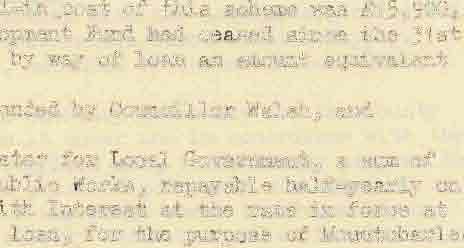 cost of this scheme was £15,500,
opment Fund had ceased since the 31st
by way of loan an amount equivalent
by Councillor Walsh, and
for Local Government, a sum of
Works, repayable half-yearly on
Interest at the rate in force at
Loan, for the purpose of Mountcharles